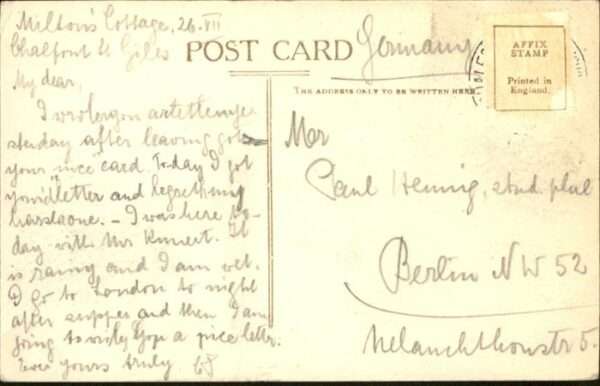 Milton's Cottage, 26. VII
Chalfont St Giles
My dear,
POST CARD
Germany
AFFIX
STAMP
Printed in
England.
THE ADDRESS ONLY TO BE WRITTEN HERE
I wrote you a letter ye-
sterday after leaving got
your "nice" card. To day I got
your letter and
- I was here to-
day with Mr It
is rainy and I am wet.
I go to London to night
after supper and then I am
going to write you a nice letter.
Ever yours truly
Paul Hennig, stud. phil
Berlin NW 52
Melanchthonstr 5.